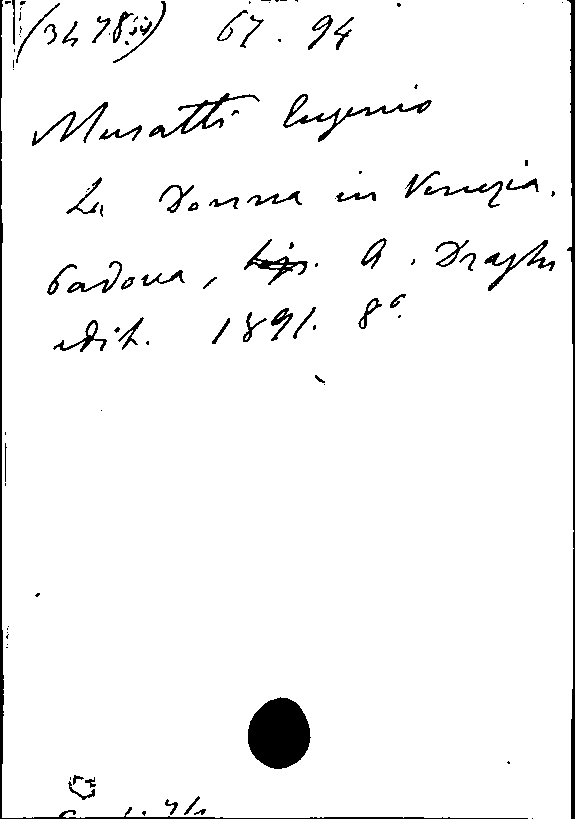 67. 94
Musatti Eugenio
La Donna in Venezia.
Padova, tip. A. Draghi
edit. 1891. 8°.